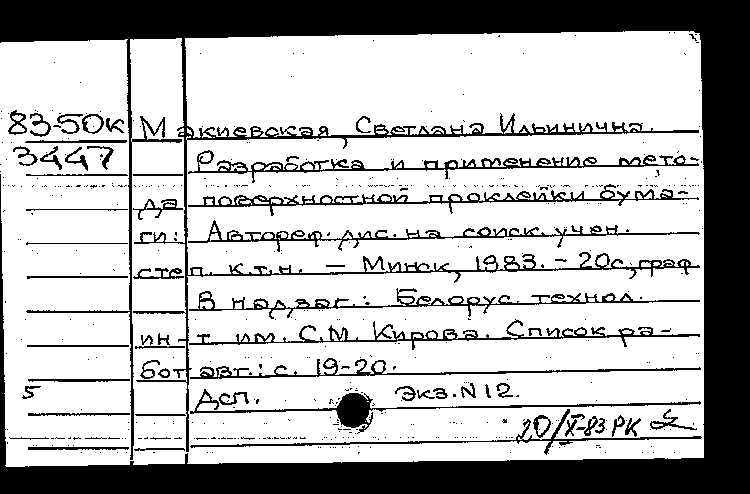 83-50к Макиевская, Светлана Ильинична.
3447 Разработка и применение мето-
да поверхностной проклейки бума-
ги: Автореф. дис. на соиск. учен.
степ. к.т.н. — Минск, 1983. - 20с., граф
В надзаг.: Белорус. технол.
ин-т им. С.М. Кирова. Список ра-
бот авт.: с. 19-20.
5 Дсп. Экз. N 12.
20/X-83 РК